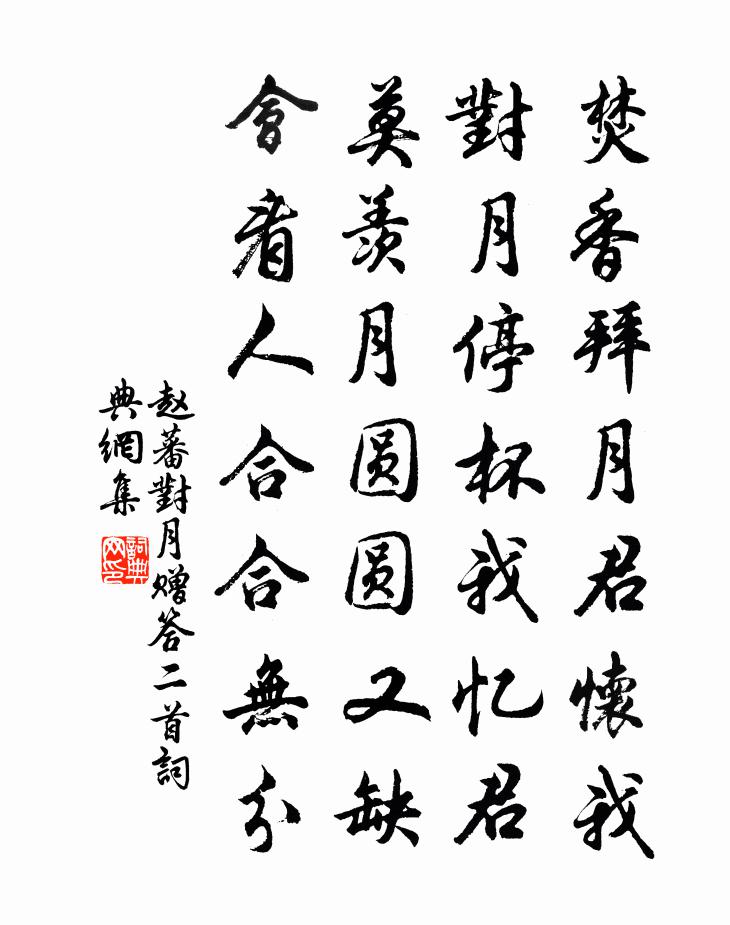 焚香拜月君懷我
對月停杯我忆君
莫羨月圆圆又缺
會看人合合無分
赵蕃對月赠答二首詞
典網集
詞典網印